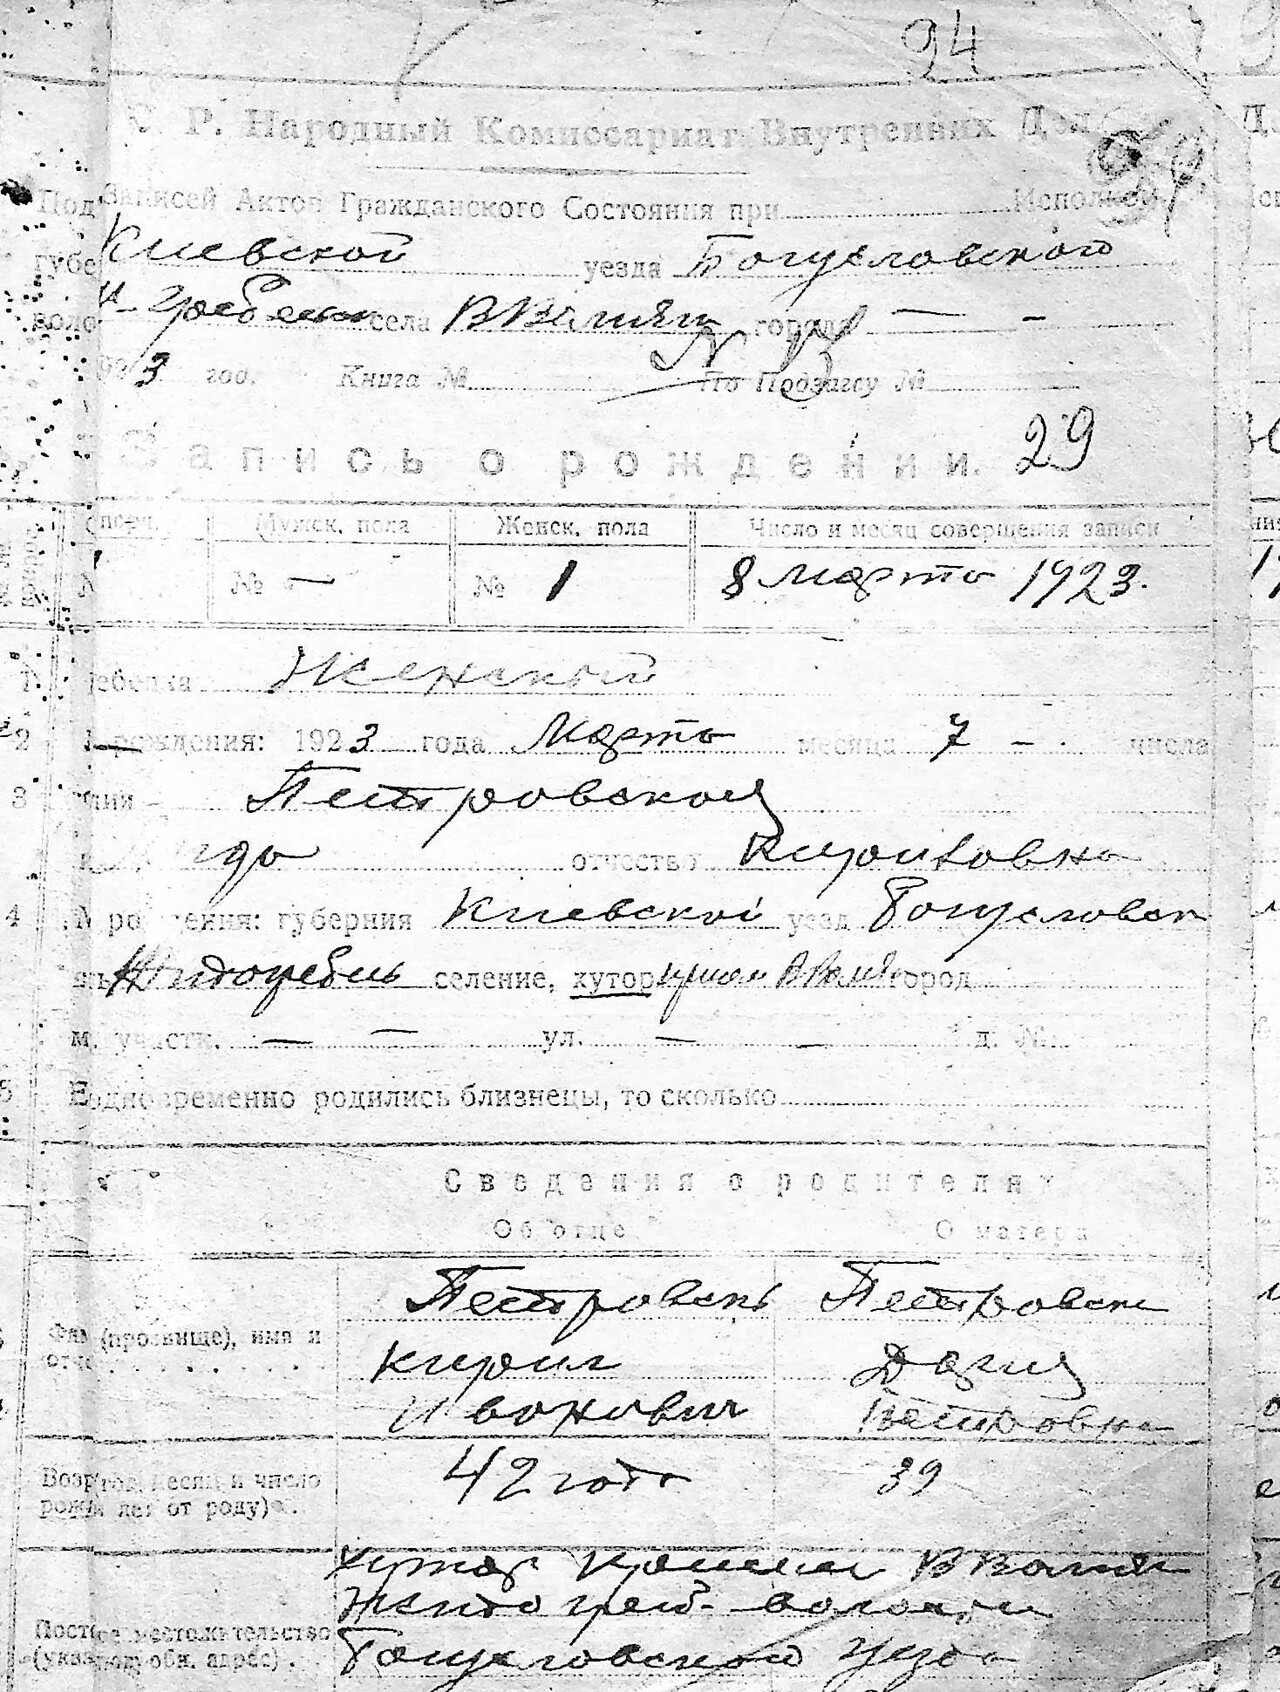 94
С. Р. Народный Комиссариат Внутренних Дел
Под Записей Актов Гражданского Состояния при Исполком
губе Киевской уезда Богусловского
воло села города — -
923 год. Книга № По Подзапсу №
N 3
Запись о рождении. 29
Мужск. пола Женск. пола Число и месяц совершения записи
№ — № 1 8 марта 1923.
1 ребенка Женский
2 рождения: 1923 года Марта месяца 7 - числа
3 Петровская
отчество Кириловна
4 М рождения: губерния Киевской уезд Богусловск
селение, хутор город
м. участк. — — ул. — — д. №
5 Е одновременно родились близнецы, то сколько
Сведения о родителях
Об отце О матери
Петровский Петровская
Фам (прозвище), имя и отче
Кирил Дария
Иванович Петровна
Возр (год, месяц и число рожд лет от роду)
42 года 39
хутор
волости
Пост е местожительство (указ обн. адрес).
Богусловского уезда